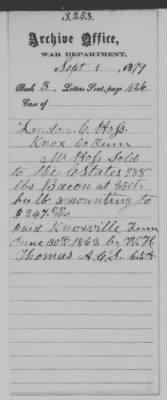 3253.
Archive Office,
WAR DEPARTMENT,
Sept 1, 1879
Book 3. Letters Sent, page 426
Case of
Landon C Hofs.
Knox Co Tenn
Mr Hofs Sold
to the C States 288
lbs Bacon at
per lb amounting to
$247.
paid Knoxville Tenn
June 30th 1863 by W. H.
Thomas A.C.S. C.S.A